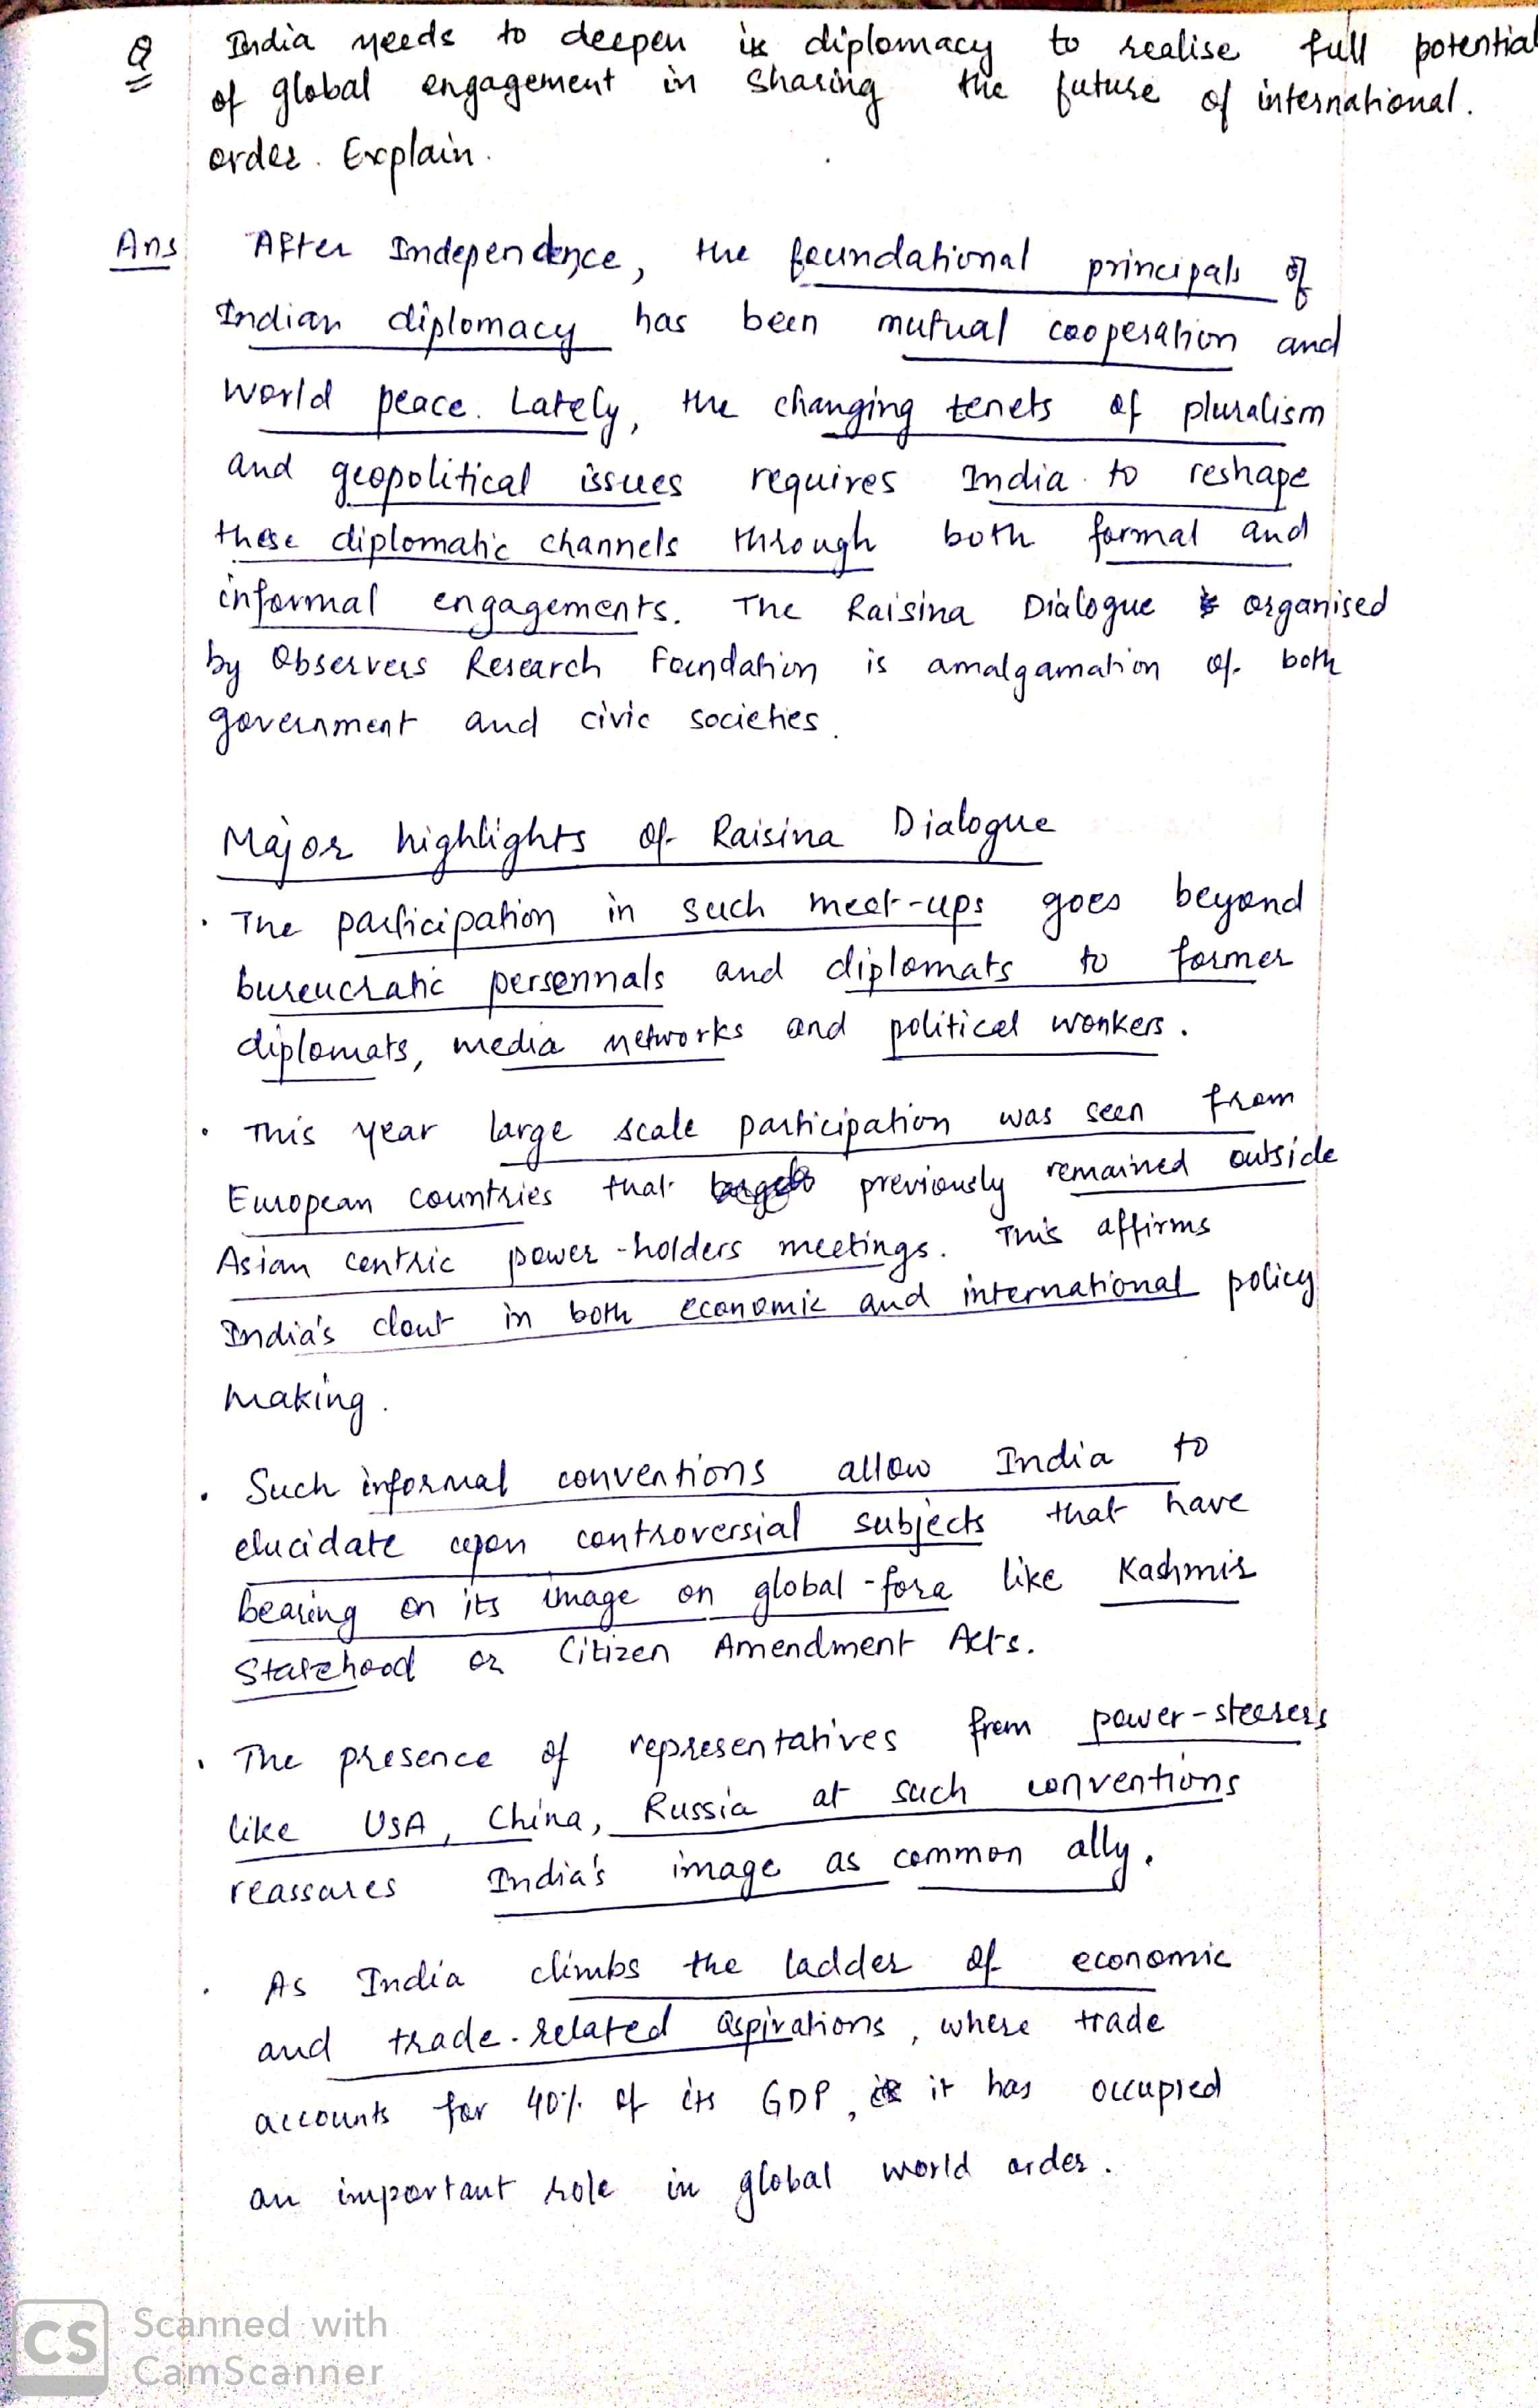 Q India needs to deepen its diplomacy to realise full potential
of global engagement in sharing the future of international.
order. Explain.
Ans After Independence, the foundational principals of
Indian diplomacy has been mutual cooperation and
world peace. Lately, the changing tenets of pluralism
and geopolitical issues requires India to reshape
these diplomatic channels through both formal and
informal engagements. The Raisina Dialogue organised
by Observers Research Foundation is amalgamation of both
government and civic societies.
Major highlights of Raisina Dialogue
• The participation in such meet-ups goes beyond
bureucratic personnals and diplomats to former
diplomats, media networks and political wonkers.
• This year large scale participation was seen from
European countries that previously remained outside
Asian centric power-holders meetings. This affirms
India's clout in both economic and international policy
making.
• Such informal conventions allow India to
elucidate upon controversial subjects that have
bearing on its image on global-fora like Kashmir
Statehood or Citizen Amendment Acts.
• The presence of representatives from power-steerers
like USA, China, Russia at such conventions
reassures India's image as common ally.
• As India climbs the ladder of economic
and trade-related aspirations, where trade
accounts for 40% of its GDP, it has occupied
an important role in global world order.
CS Scanned with
CamScanner